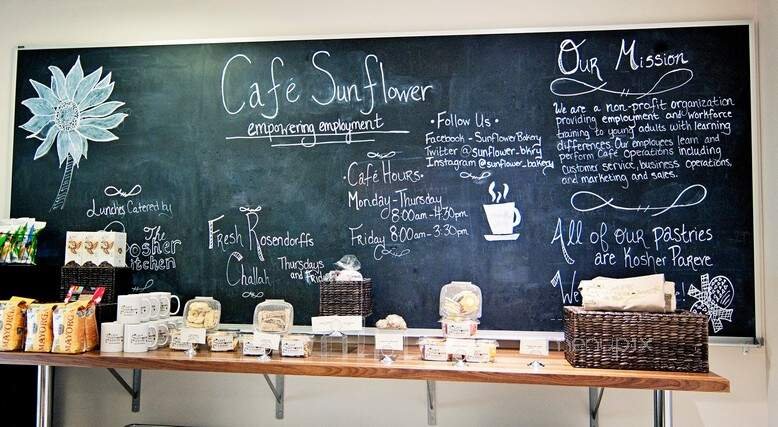 Café Sunflower
empowering employment
• Follow Us •
Facebook - Sunflower Bakery
Twitter @sunflower_bkry
Instagram @sunflower_bakery
• Café Hours •
Monday-Thursday
8:00am-4:30pm
Friday 8:00am-3:30pm
Lunches Catered by
The
Kosher
Kitchen
Fresh Rosendorffs
Challah Thursdays
and Friday
Our Mission
We are a non-profit organization
providing employment and workforce
training to young adults with learning
differences. Our employees learn and
perform Café operations including
customer service, business operations,
and marketing and sales.
All of our pastries
are Kosher Pareve
We
MAYORGA